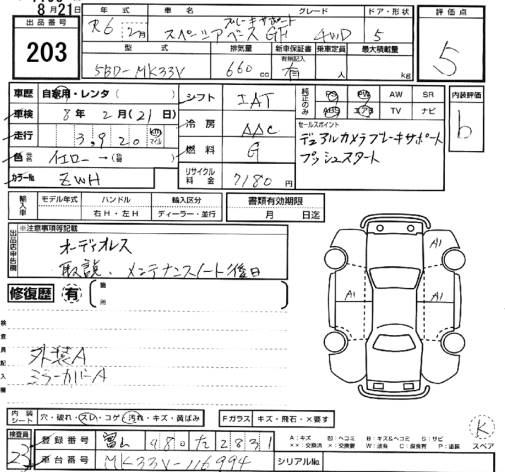 8月21日
出品番号
203
年式
R6 2月
車名
グレード
ドア・形状
ブレーキサポート
スペーシアベース GF 4WD 5
型式
5BD-MK33V
排気量
660 cc
新車保証書
有無記入
有
乗車定員
人
最大積載量
kg
評価点
5
車歴
自家用・レンタ
車検
8年2月(21日)
走行
3,920
km
マイル
色
イエロー→
カラーNo.
ZWH
シフト
IAT
冷房
AAC
燃料
G
リサイクル料金
7180円
純正のみ
PS PW AW SR
エアB TV ナビ
セールスポイント
デュアルカメラブレーキサポート
プッシュスタート
内装評価
b
輸入車
モデル年式 ハンドル 輸入区分
右H・左H ディーラー・並行
書類有効期限
月 日迄
出品店申告欄
※注意事項等記載
オーディオレス
取説、メンテナンスノート後日
修復歴 有
箇所
検査員記入欄
外装A
ミラーカバーA
A1
A1
A1
A1
内装シート
穴・破れ・スレ・コゲ・汚れ・キズ・黄ばみ
Fガラス キズ・飛石・×要す
検査員
23
登録番号
富山 480 た 2831
車台番号
MK33V-116994
シリアルNo.
A:キズ U:ヘコミ B:キズ&ヘコミ S:サビ
P:塗装
K
スペア